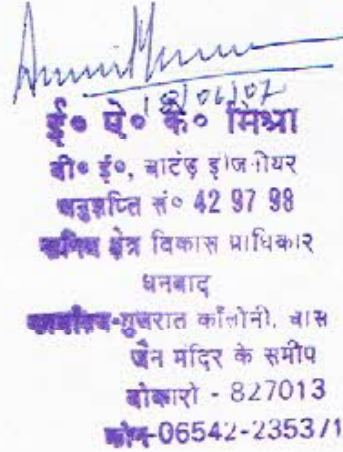 18/06/07
ई० ऐ० के० मिश्रा
बी० ई०, चार्टड़ इंजीनियर
अनुज्ञप्ति सं० 42 97 98
खनिज क्षेत्र विकास प्राधिकार
धनबाद
कार्यालय-गुजरात कॉलोनी, चास
जैन मंदिर के समीप
बोकारो - 827013
फोन-06542-235371